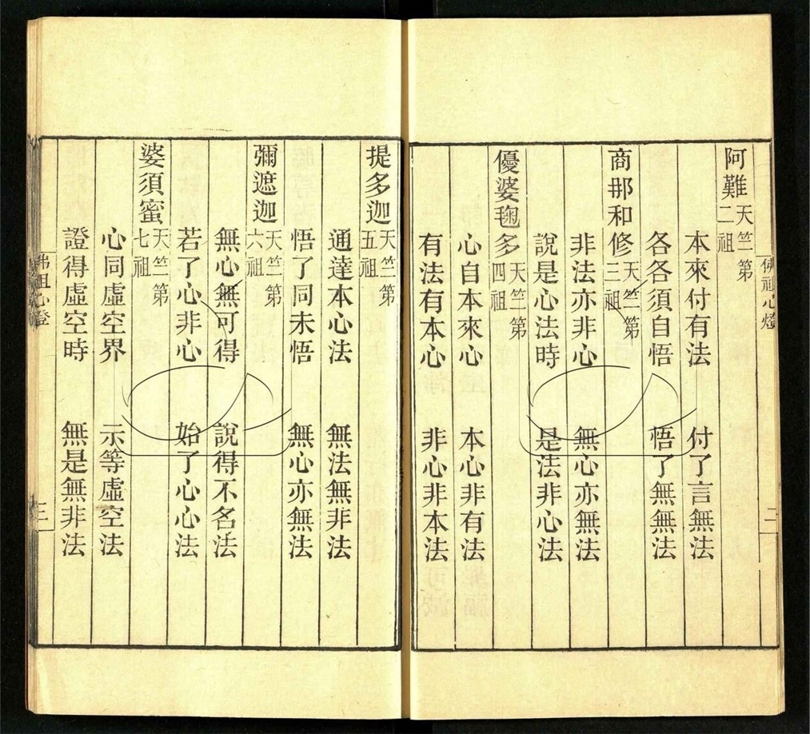 佛祖心燈
二
阿難天竺第二祖
本來付有法 付了言無法
各各須自悟 悟了無無法
商那和修天竺第三祖
非法亦非心 無心亦無法
說是心法時 是法非心法
優婆毱多天竺第四祖
心自本來心 本心非有法
有法有本心 非心非本法
提多迦天竺第五祖
通達本心法 無法無非法
悟了同未悟 無心亦無法
彌遮迦天竺第六祖
無心無可得 說得不名法
若了心非心 始了心心法
婆須蜜天竺第七祖
心同虛空界 示等虛空法
證得虛空時 無是無非法
佛祖心燈
三